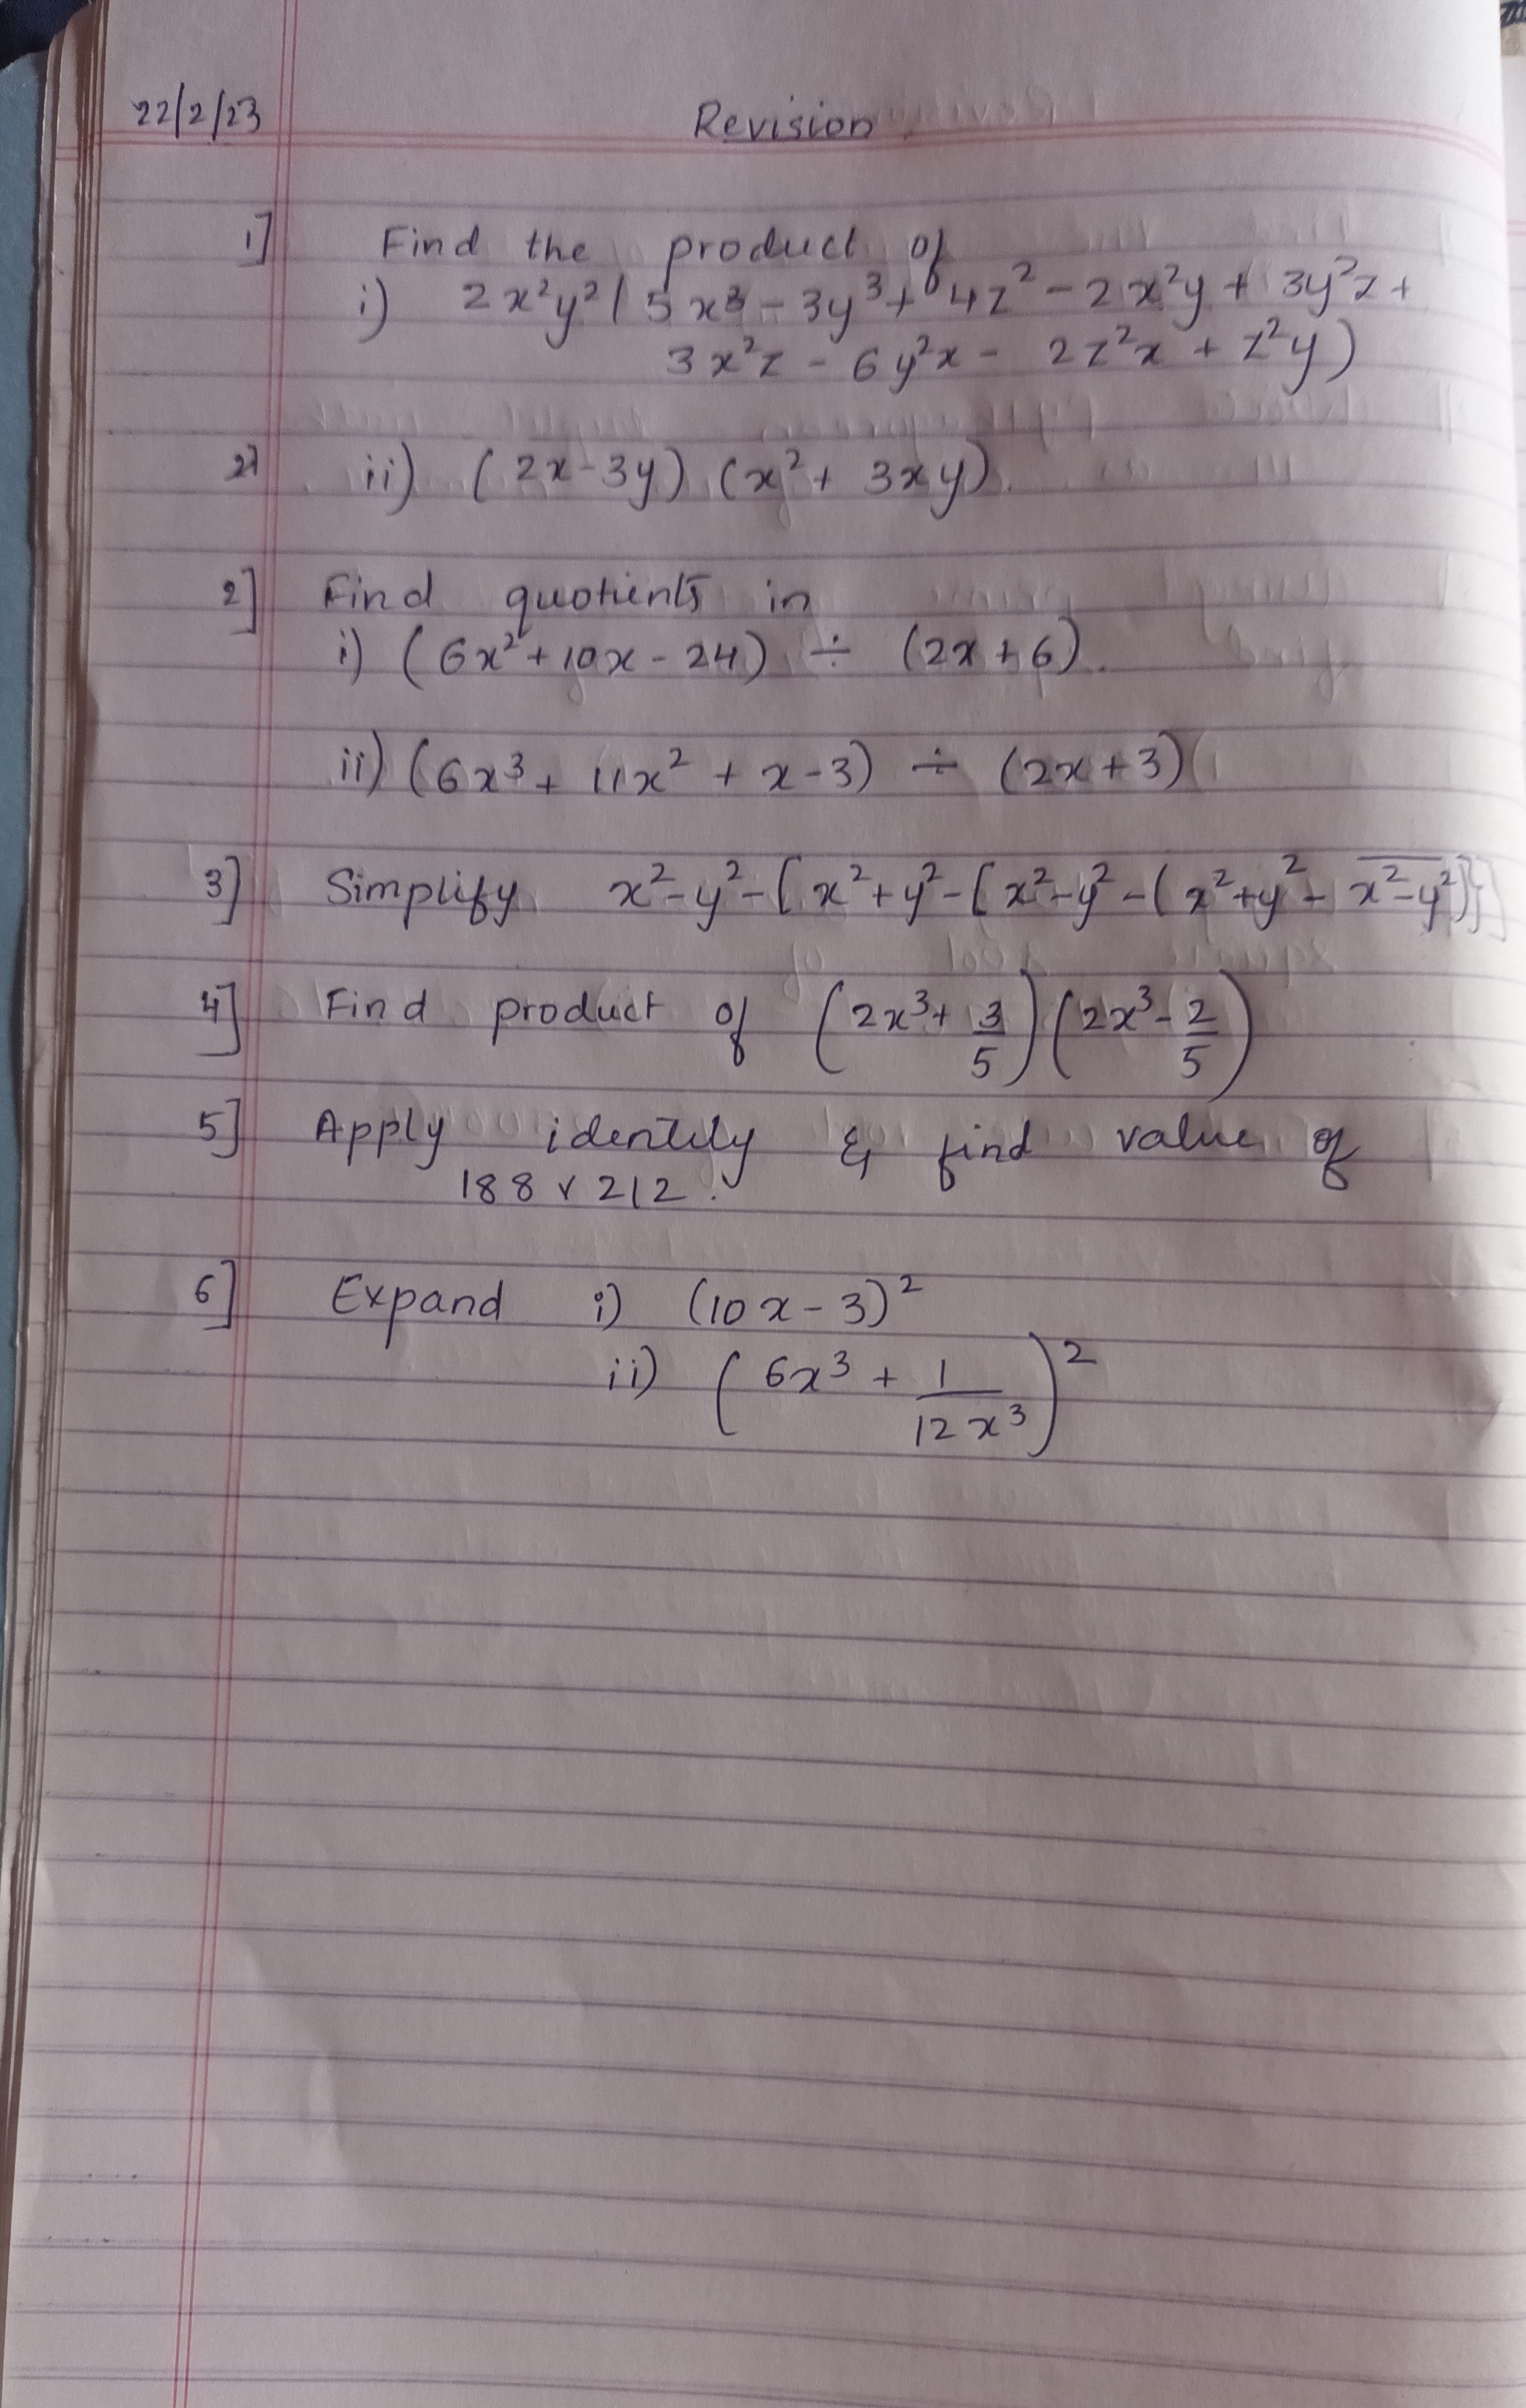 22/2/23 Revision
1] Find the product of
i) 2x²y²(5x³ - 3y³ + 4z² - 2x²y + 3y²z +
3x²z - 6y²x - 2z²x + z²y)
2] ii) (2x-3y) (x² + 3xy).
2] Find quotients in
i) (6x² + 10x - 24) ÷ (2x + 6).
ii) (6x³ + 11x² + x - 3) ÷ (2x + 3)
3] Simplify x²-y²-[x²+y²-[x²-y²-(x²+y²-x̅²̅-̅y̅²)}]
4] Find product of (2x³ + 3/5)(2x³ - 2/5)
5] Apply identity & find value of
188 x 212.
6] Expand i) (10x - 3)²
ii) (6x³ + 1/12x³)²